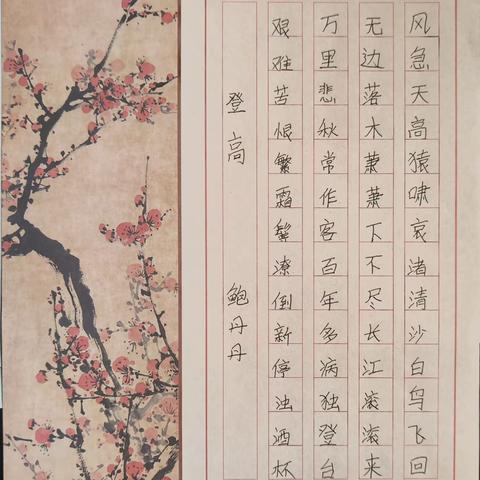 风急天高猿啸哀渚清沙白鸟飞回
无边落木萧萧下不尽长江滚滚来
万里悲秋常作客百年多病独登台
艰难苦恨繁霜鬓潦倒新停浊酒杯
登高 鲍丹丹